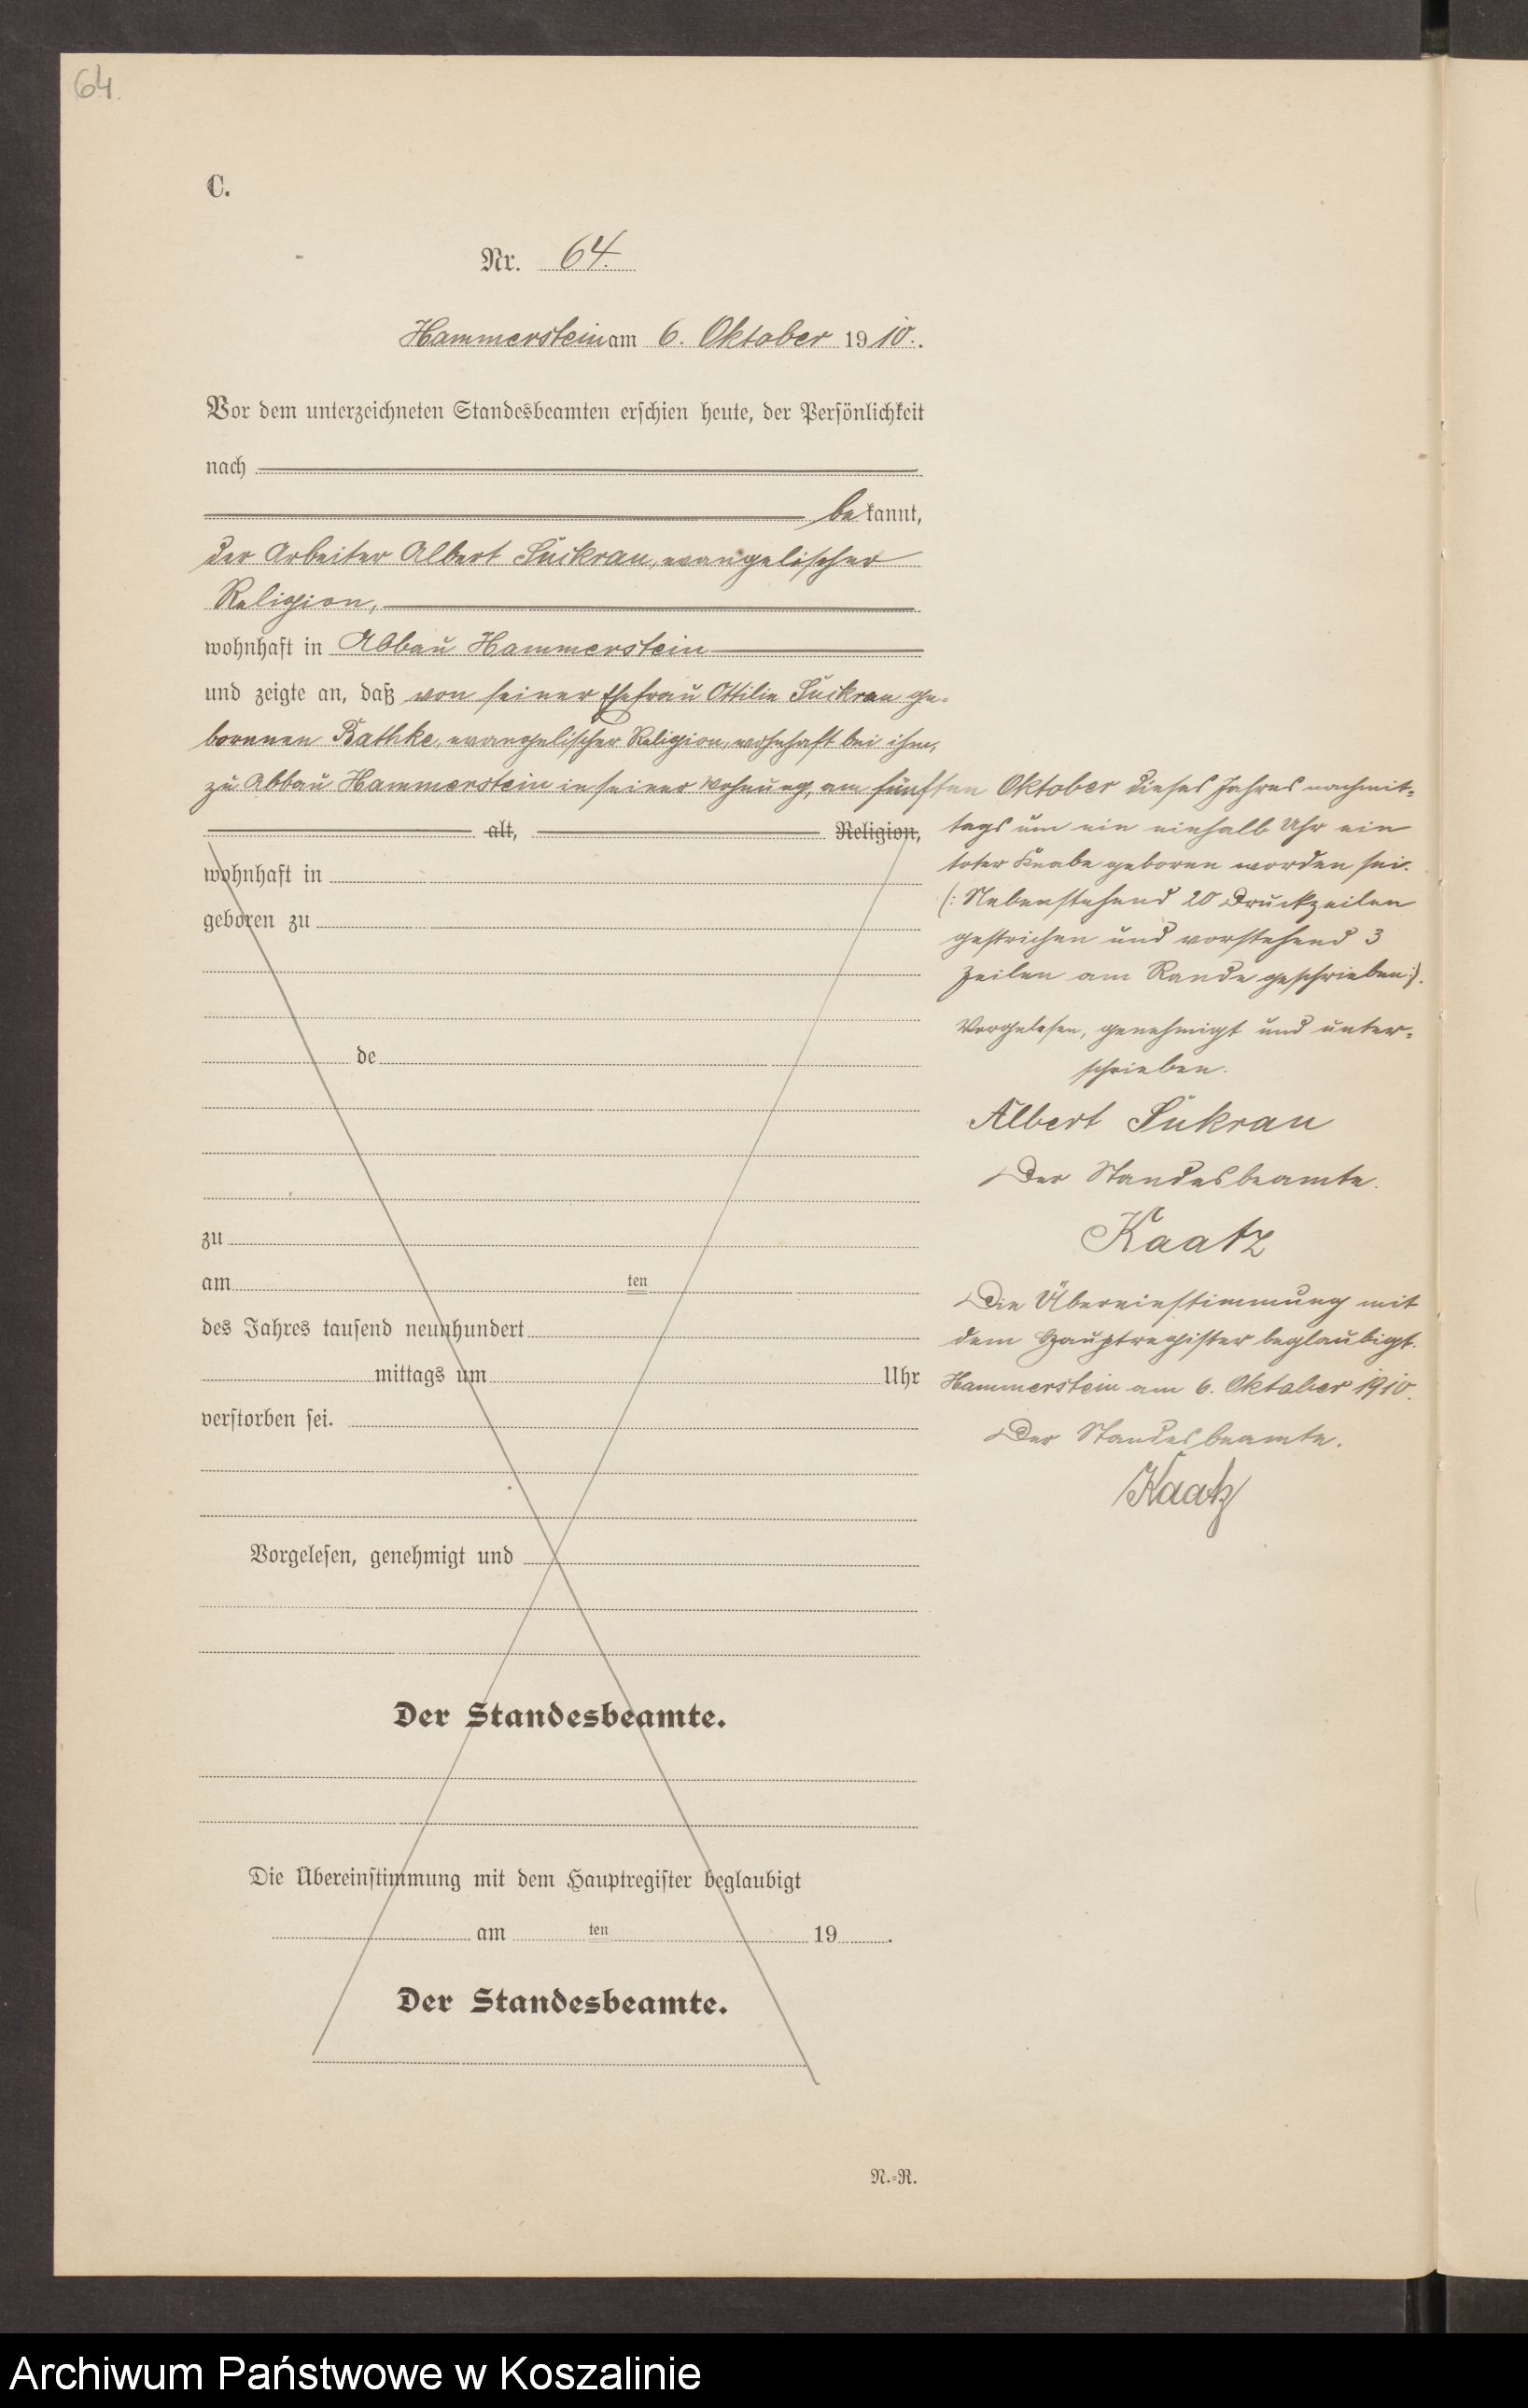 64.
C.
Nr. 64.
Hammerstein am 6. Oktober 1910.
Vor dem unterzeichneten Standesbeamten erschien heute, der Persönlichkeit
nach
bekannt,
der Arbeiter Albert Suckrau, evangelischer
Religion,
wohnhaft in Abbau Hammerstein
und zeigte an, daß von seiner Ehefrau Ottilie Suckrau ge-
borenen Bathke, evangelischer Religion, wohnhaft bei ihm,
zu Abbau Hammerstein in seiner Wohnung, am fünften Oktober dieses Jahres nachmit-
tags um ein einhalb Uhr ein
toter Knabe geboren worden sei.
(: Nebenstehend 20 Druckzeilen
gestrichen und vorstehend 3
Zeilen am Rande geschrieben :).
Vorgelesen, genehmigt und unter-
schrieben.
Albert Sukrau
Der Standesbeamte.
Kaatz
Die Übereinstimmung mit
dem Hauptregister beglaubigt.
Hammerstein am 6. Oktober 1910.
Der Standesbeamte.
Kaatz
alt, Religion,
wohnhaft in
geboren zu
de
zu
am ten
des Jahres tausend neunhundert
mittags um Uhr
verstorben sei.
Vorgelesen, genehmigt und
Der Standesbeamte.
Die Übereinstimmung mit dem Hauptregister beglaubigt
am ten 19 .
Der Standesbeamte.
N.-R.
Archiwum Państwowe w Koszalinie